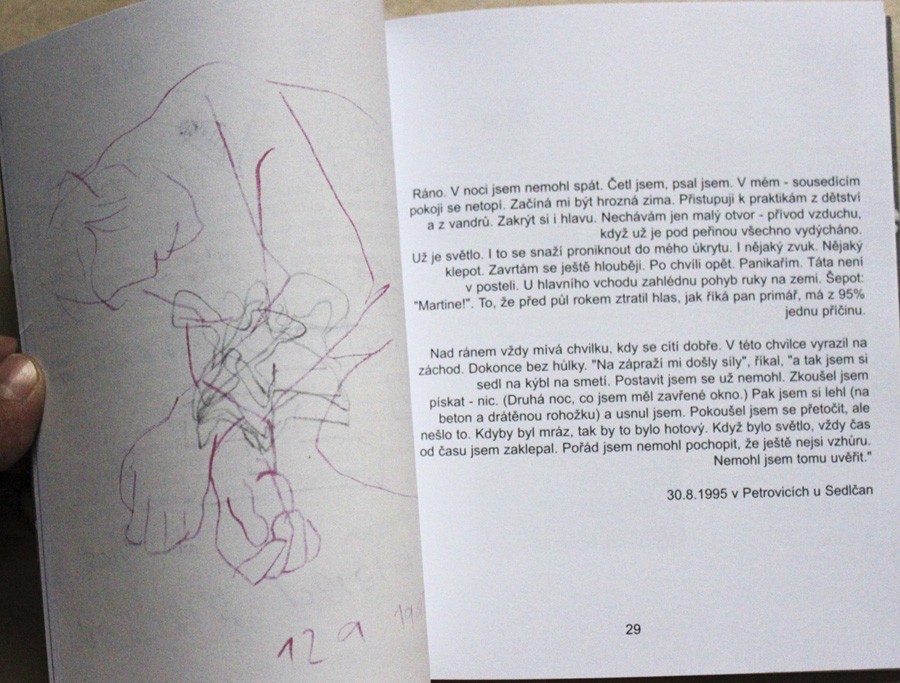 12 9
Ráno. V noci jsem nemohl spát. Četl jsem, psal jsem. V mém - sousedícim
pokoji se netopí. Začíná mi být hrozná zima. Přistupuji k praktikám z dětství
a z vandrů. Zakrýt si i hlavu. Nechávám jen malý otvor - přívod vzduchu,
když už je pod peřinou všechno vydýcháno.
Už je světlo. I to se snaží proniknout do mého úkrytu. I nějaký zvuk. Nějaký
klepot. Zavrtám se ještě hlouběji. Po chvíli opět. Panikařím. Táta není
v posteli. U hlavního vchodu zahlédnu pohyb ruky na zemi. Šepot:
"Martine!". To, že před půl rokem ztratil hlas, jak říká pan primář, má z 95%
jednu příčinu.
Nad ránem vždy mívá chvilku, kdy se cítí dobře. V této chvilce vyrazil na
záchod. Dokonce bez hůlky. "Na zápraží mi došly síly", říkal, "a tak jsem si
sedl na kýbl na smetí. Postavit jsem se už nemohl. Zkoušel jsem
pískat - nic. (Druhá noc, co jsem měl zavřené okno.) Pak jsem si lehl (na
beton a drátěnou rohožku) a usnul jsem. Pokoušel jsem se přetočit, ale
nešlo to. Kdyby byl mráz, tak by to bylo hotový. Když bylo světlo, vždy čas
od času jsem zaklepal. Pořád jsem nemohl pochopit, že ještě nejsi vzhůru.
Nemohl jsem tomu uvěřit."
30.8.1995 v Petrovicích u Sedlčan
29